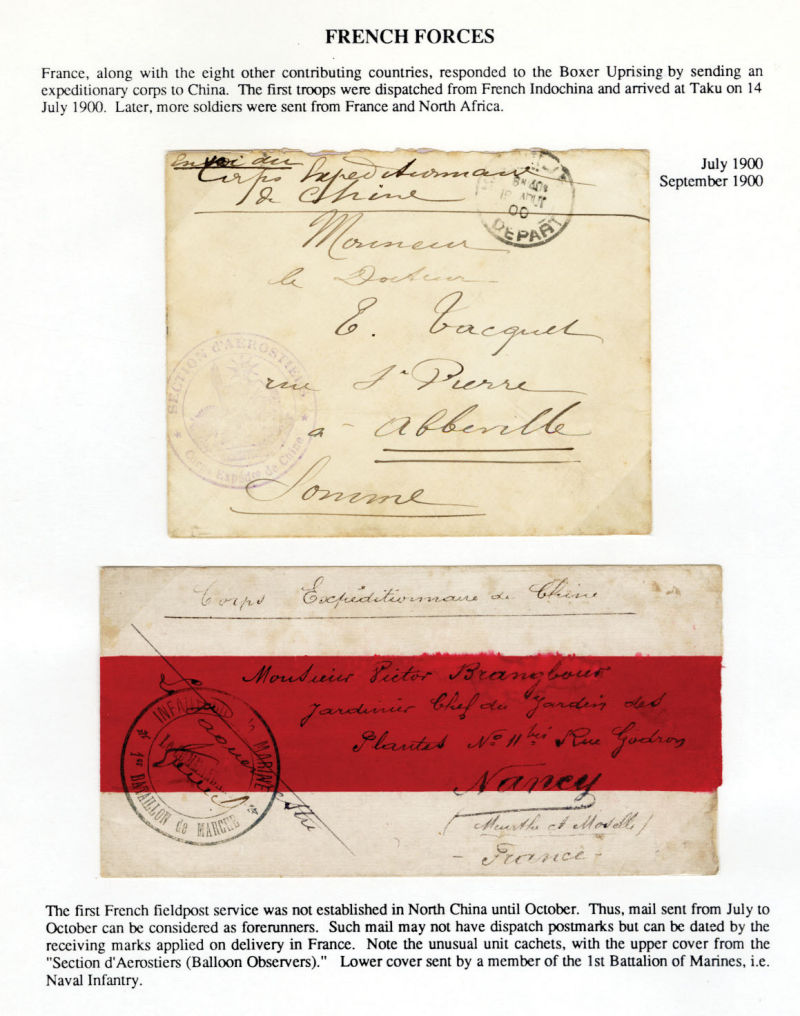 FRENCH FORCES
France, along with the eight other contributing countries, responded to the Boxer Uprising by sending an
expeditionary corps to China. The first troops were dispatched from French Indochina and arrived at Taku on 14
July 1900. Later, more soldiers were sent from France and North Africa.
July 1900
September 1900
Envoi du
Corps Expéditionnaire
de Chine
AOUT
00
DEPART
Monsieur
le Docteur
E. Vacquet
rue St Pierre
a Abbeville
Somme
SECTION d'AEROSTIERS
Corps Expédre de Chine
Corps Expéditionnaire de Chine
Monsieur Victor Brangbour
Jardinier Chef du Jardin des
Plantes No 11 bis Rue Godron
Nancy
(Meurthe et Moselle)
- France -
INFANTERIE de MARINE
1er BATAILLON de MARCHE
The first French fieldpost service was not established in North China until October. Thus, mail sent from July to
October can be considered as forerunners. Such mail may not have dispatch postmarks but can be dated by the
receiving marks applied on delivery in France. Note the unusual unit cachets, with the upper cover from the
"Section d'Aerostiers (Balloon Observers)." Lower cover sent by a member of the 1st Battalion of Marines, i.e.
Naval Infantry.